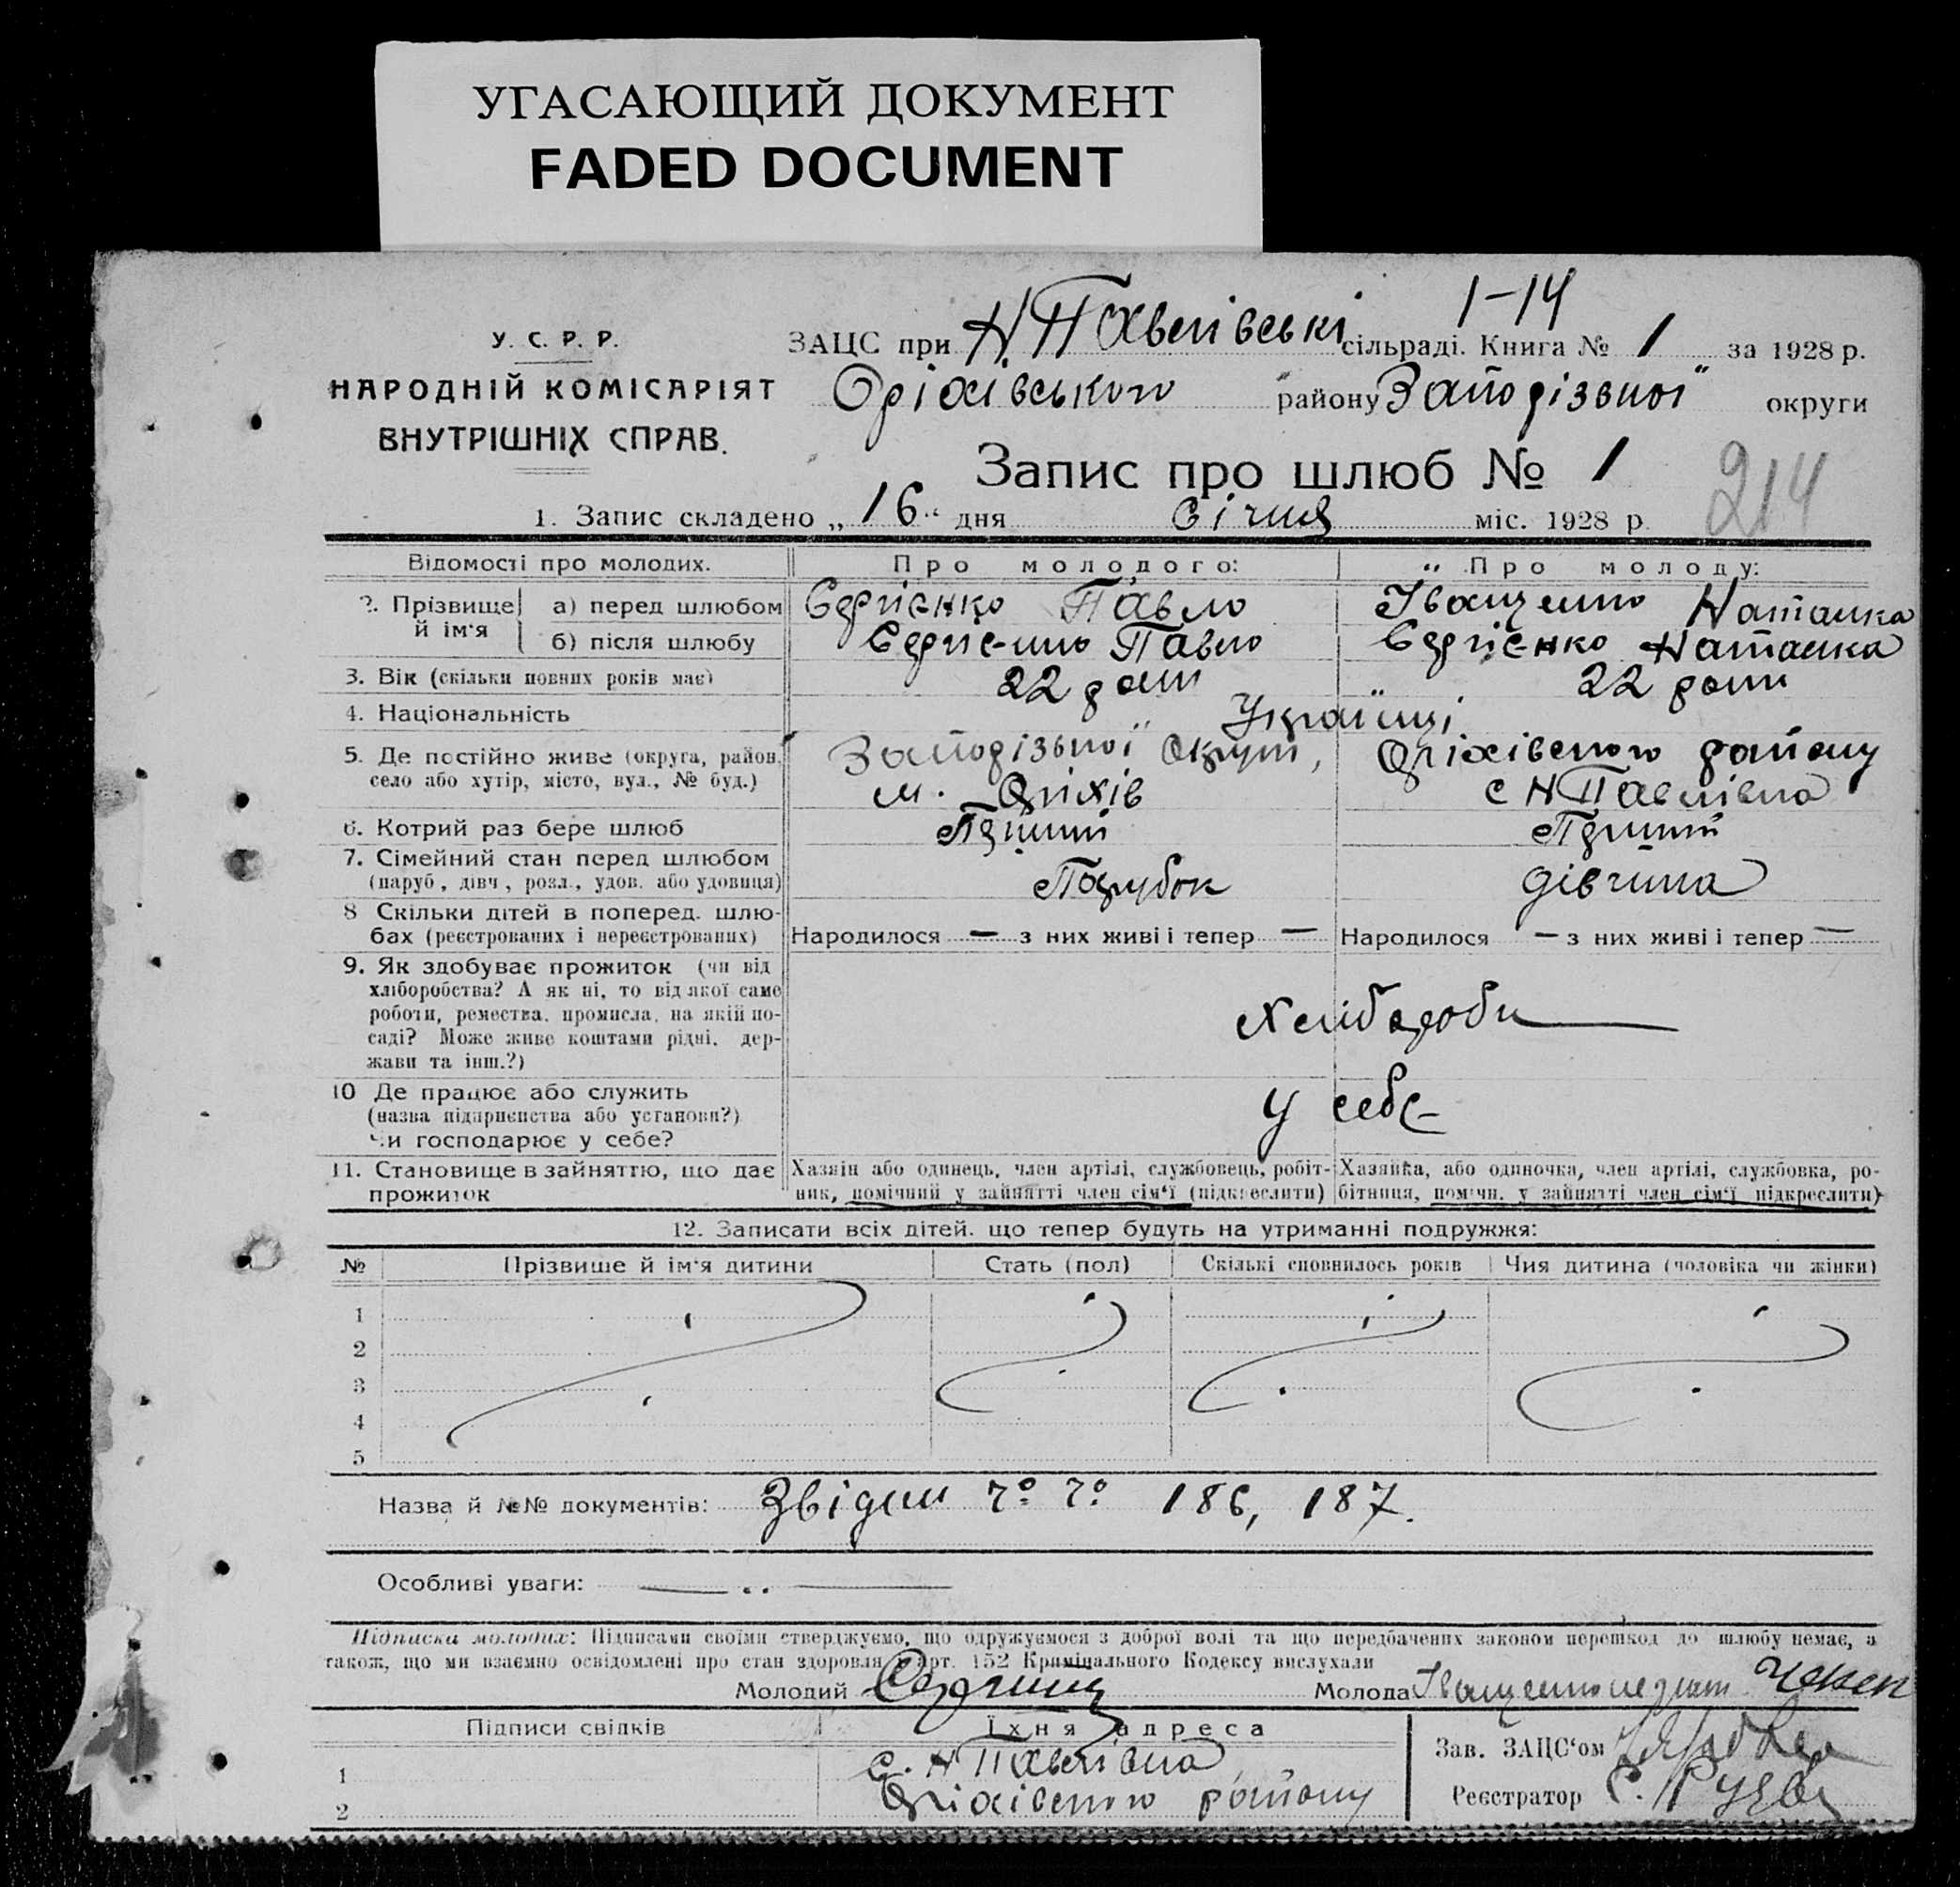 УГАСАЮЩИЙ ДОКУМЕНТ
FADED DOCUMENT
1-14
У. С. Р. Р.
НАРОДНІЙ КОМІСАРІЯТ
ВНУТРІШНІХ СПРАВ.
ЗАЦС при Н. Павлівські сільраді. Книга № 1 за 1928 р.
Оріхівського району Запорізької округи
Запис про шлюб № 1
214
1. Запис складено „16“ дня Січня міс. 1928 р.
Відомості про молодих. Про молодого: Про молоду:
2. Прізвище й ім‘я а) перед шлюбом Сергієнко Павло Іващенко Наталка
б) після шлюбу Сергієнко Павло Сергієнко Наталка
3. Вік (скільки повних років має) 22 роки 22 роки
4. Національність Українці
5. Де постійно живе (округа, район, Запорізької округи, Оріхівського району
село або хутір, місто, вул., № буд.) м. Оріхів с Н Павлівка
6. Котрий раз бере шлюб Перший Перший
7. Сімейний стан перед шлюбом
(паруб, дівч, розл., удов. або удовиця) Парубок дівчина
8 Скільки дітей в поперед. шлю-
бах (реєстрованих і нереєстрованих) Народилося — з них живі і тепер — Народилося — з них живі і тепер —
9. Як здобуває прожиток (чи від
хліборобства? А як ні, то від якої саме
роботи, ремества, промисла, на якій по-
саді? Може живе коштами рідні, дер-
жави та інш.?)
Хлібороби
10 Де працює або служить
(назва підприємства або установи?)
Чи господарює у себе?
у себе
11. Становище в зайняттю, що дає прожиток
Хазяїн або одинець, член артілі, службовець, робіт-
ник, помічний у зайнятті член сім‘ї (підкреслити)
Хазяйка, або одиночка, член артілі, службовка, ро-
бітниця, помічн. у зайнятті член сім‘ї підкреслити)
12. Записати всіх дітей. що тепер будуть на утриманні подружжя:
№ Прізвише й ім‘я дитини Стать (пол) Скількі сповнилось років Чия дитина (чоловіка чи жінки)
1
2
3
4
5
Назва й №№ документів: Звідки 186, 187.
Особливі уваги:
Підписка молодих: Підписами своїми стверджуємо, що одружуємося з доброї волі та що передбачених законом перешкод до шлюбу немає, а
також, що ми взаємно освідомлені про стан здоровля арт. 152 Кримінального Кодексу вислухали
Молодий Молода Іващенко
Підписи свідків Їхня адреса
Зав. ЗАЦС‘ом
1 с. Н Павлівка
Реєстратор
2 Оріхівського району